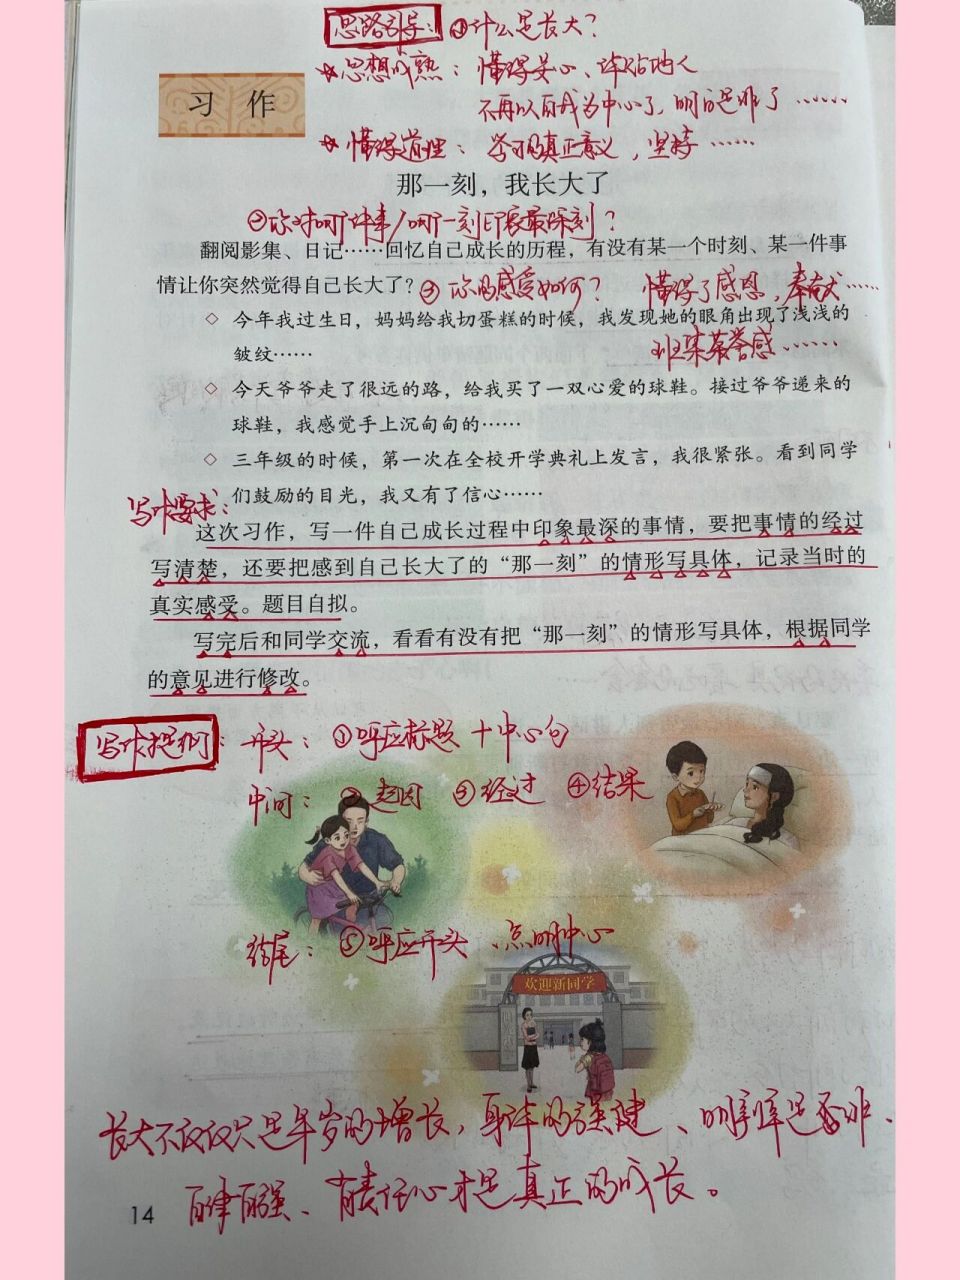 思路引导：①什么是长大？
☆思想成熟：懂得关心、体贴他人
不再以自我为中心了，明白是非了……
习 作
☆懂得道理：学习的真正意义，坚持……
那一刻，我长大了
②你对哪件事/哪一刻印象最深刻？
翻阅影集、日记……回忆自己成长的历程，有没有某一个时刻、某一件事
情让你突然觉得自己长大了？③你的感受如何？ 懂得了感恩，奉献……
◇ 今年我过生日，妈妈给我切蛋糕的时候，我发现她的眼角出现了浅浅的
皱纹…… 班集荣誉感……
◇ 今天爷爷走了很远的路，给我买了一双心爱的球鞋。接过爷爷递来的
球鞋，我感觉手上沉甸甸的……
◇ 三年级的时候，第一次在全校开学典礼上发言，我很紧张。看到同学
们鼓励的目光，我又有了信心……
写作要求：
这次习作，写一件自己成长过程中印象最深的事情，要把事情的经过
写清楚，还要把感到自己长大了的“那一刻”的情形写具体，记录当时的
真实感受。题目自拟。
写完后和同学交流，看看有没有把“那一刻”的情形写具体，根据同学
的意见进行修改。
写作提纲：开头：①呼应标题＋中心句
中间：②起因 ③经过 ④结果
结尾：⑤呼应开头、点明中心
欢迎新同学
长大不仅仅只是年岁的增长，身体的强健、明辨是非、
自律自强、有责任心才是真正的成长。
14